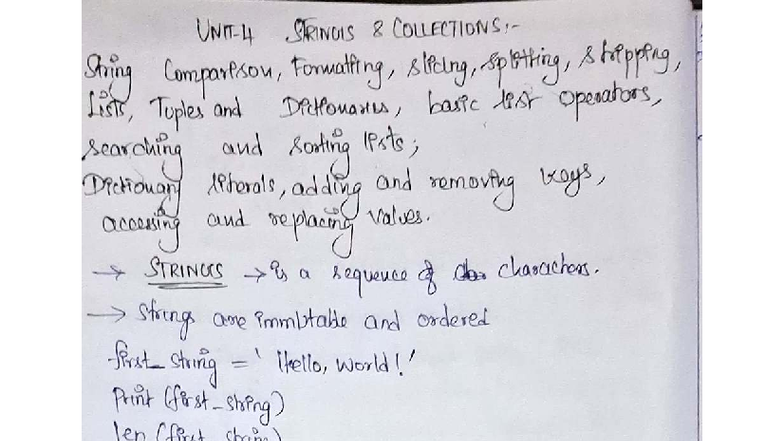 UNIT-4 STRINGS & COLLECTIONS:-
String Comparison, Formatting, slicing, splitting, stripping,
Lists, Tuples and Dictionaries, basic list operators,
searching and sorting lists;
Dictionary literals, adding and removing keys,
accessing and replacing values.
→ STRINGS → is a sequence of characters.
→ Strings are immutable and ordered
first_string = 'Hello, world!'
Print (first_string)
len (first_string)